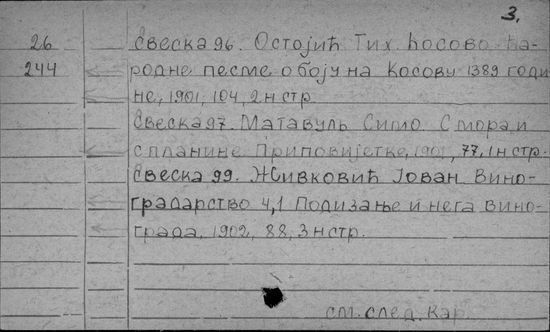 3.
26 Свеска 96. Остојић Тих. Косово На-
244 родне песме о боју на Косову 1389 годи
не, 1901, 104, 2 н стр
Свеска 97. Матавуљ Симо. С мора и
с планине Приповијетке, 1901, 77, 1 н стр.
Свеска 99. Живковић Јован Вино-
градарство 4,1 Подизање и нега вино-
града, 1902, 88, 3 н стр.
см. след. кар.